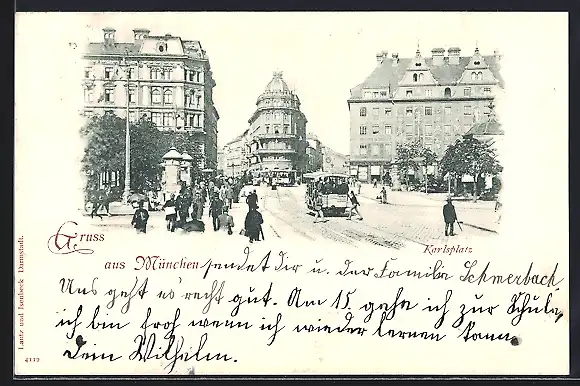 Gruss
aus München sendet Dir u. der Familie Schmerbach
Uns geht es recht gut. Am 15 gehe ich zur Schule,
ich bin froh wenn ich wieder lernen kann.
Dein Wilhelm.
Karlsplatz
Lautz und Isenbeck Darmstadt.
4112